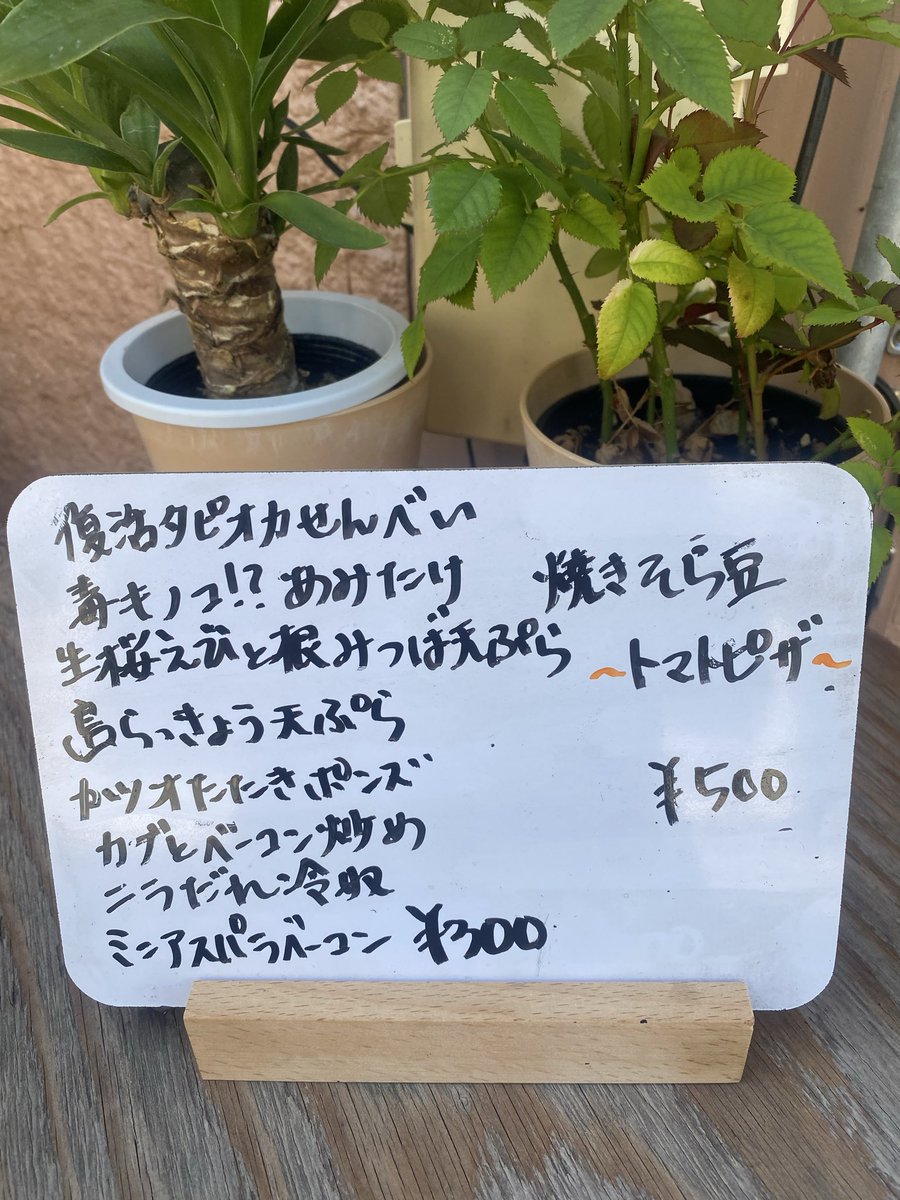 復活タピオカせんべい
毒キノコ!?あみたけ
生桜えびと根みつば天ぷら
島らっきょう天ぷら
カツオたたきポンズ
カブとベーコン炒め
ニラだれ冷奴
ミニアスパラベーコン ¥300
焼きそら豆
~トマトピザ~
¥500